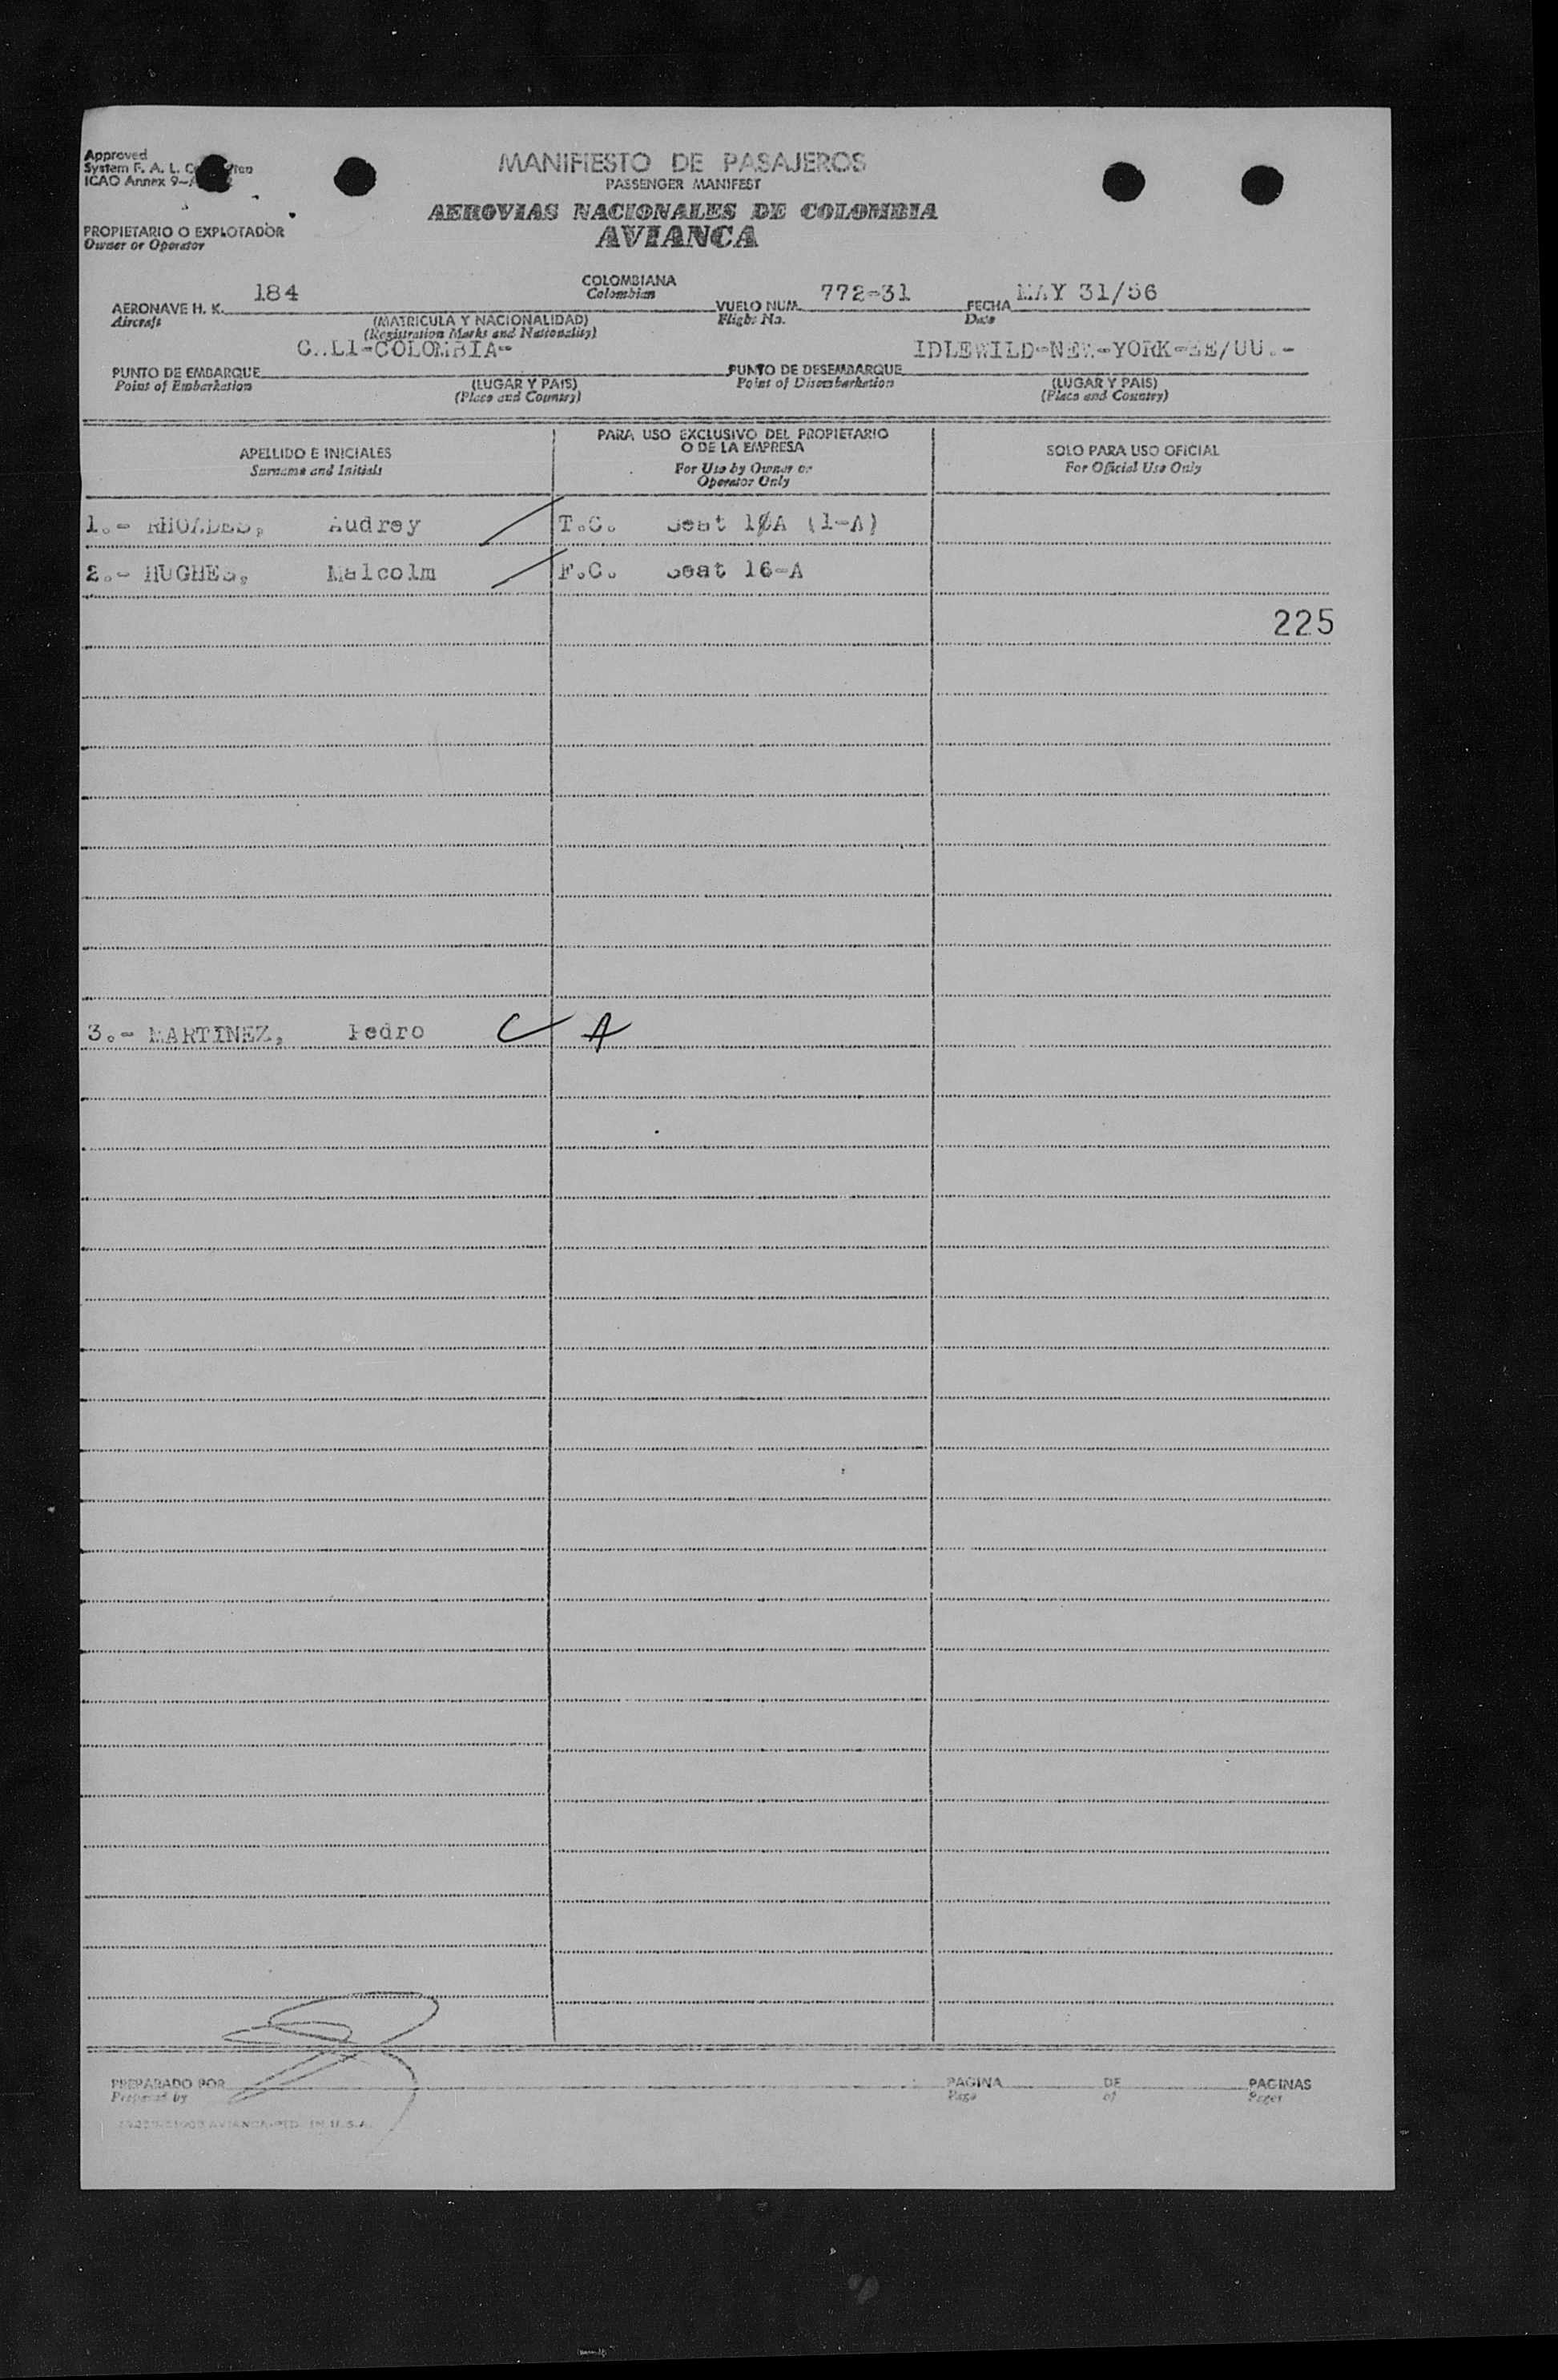 Approved
System F. A. L.
ICAO Annex 9
MANIFIESTO DE PASAJEROS
PASSENGER MANIFEST
AEROVIAS NACIONALES DE COLOMBIA
AVIANCA
PROPIETARIO O EXPLOTADOR
Owner or Operator
AERONAVE H. K. 184 COLOMBIANA VUELO NUM. 772-31 FECHA MAY 31/56
Aircraft Colombian Flight No. Date
(MATRICULA Y NACIONALIDAD)
(Registration Marks and Nationality)
PUNTO DE EMBARQUE CALI-COLOMBIA- PUNTO DE DESEMBARQUE IDLEWILD-NEW-YORK-EE/UU.-
Point of Embarkation (LUGAR Y PAIS) Point of Disembarkation (LUGAR Y PAIS)
(Place and Country) (Place and Country)
APELLIDO E INICIALES
Surname and Initials
PARA USO EXCLUSIVO DEL PROPIETARIO
O DE LA EMPRESA
For Use by Owner or
Operator Only
SOLO PARA USO OFICIAL
For Official Use Only
1.- RHOADES, Audrey T.C. Seat 10A (1-A)
2.- HUGHES, Malcolm F.C. Seat 16-A
225
3.- MARTINEZ, Pedro C A
PREPARADO POR PAGINA DE PAGINAS
Prepared by Page of Pages
AVIANCA-PTD. IN U.S.A.